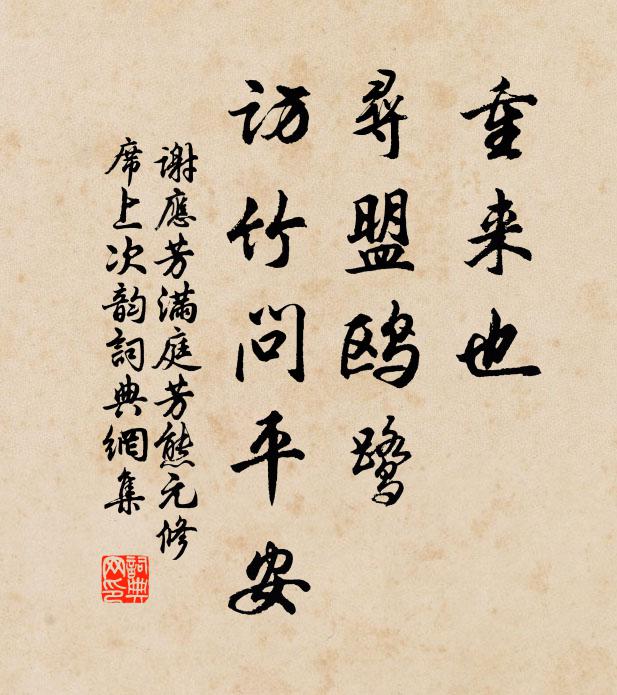 重来也
尋盟鸥鹭
访竹问平安
谢應芳满庭芳熊元修
席上次韵词典網集
词典网印